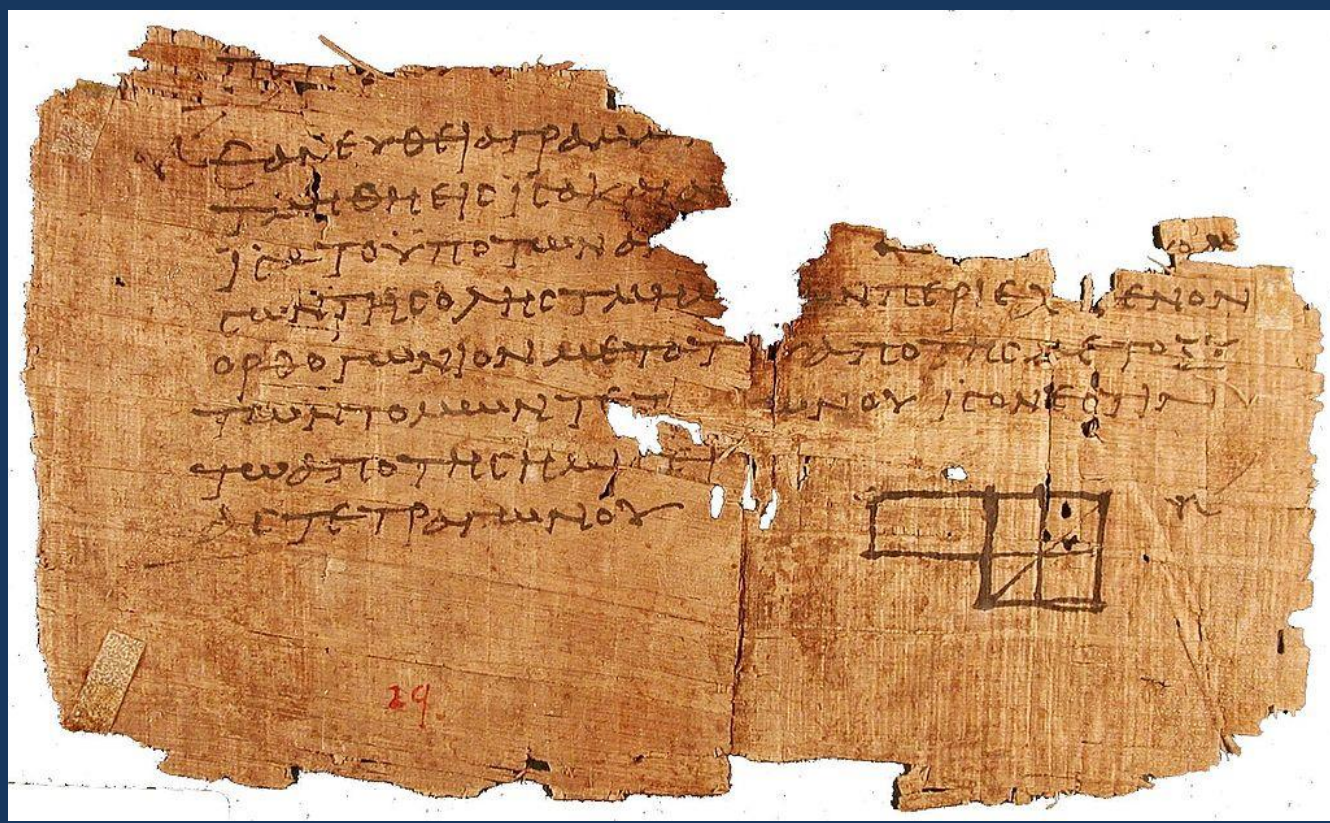 ΕΑΝΕΥΘΕΙΑΓΡΑΜ
ΤΜΗΘΗΕΙϹΙϹΑΚΑΙΑ
ΙϹΑΤΟΥΠΟΤΩΝΑ
ϹΩΝΤΗϹΟΛΗϹΤΜΗΜ ΩΝΠΕΡΙΕΧ ΕΝΟΝ
ΟΡΘΟΓΩΝΙΟΝΜΕΤΟΤ ΑΠΟΤΗϹΜΕΤΟΞΥ
ΤΩΝΤΟΜΩΝΤΕΤ ΩΝΟΥΙϹΟΝΕϹΤΙΝ
ΤΩΑΠΟΤΗϹΗΜΙϹΕΙ
ΑϹΤΕΤΡΑΓΩΝΟΥ
29